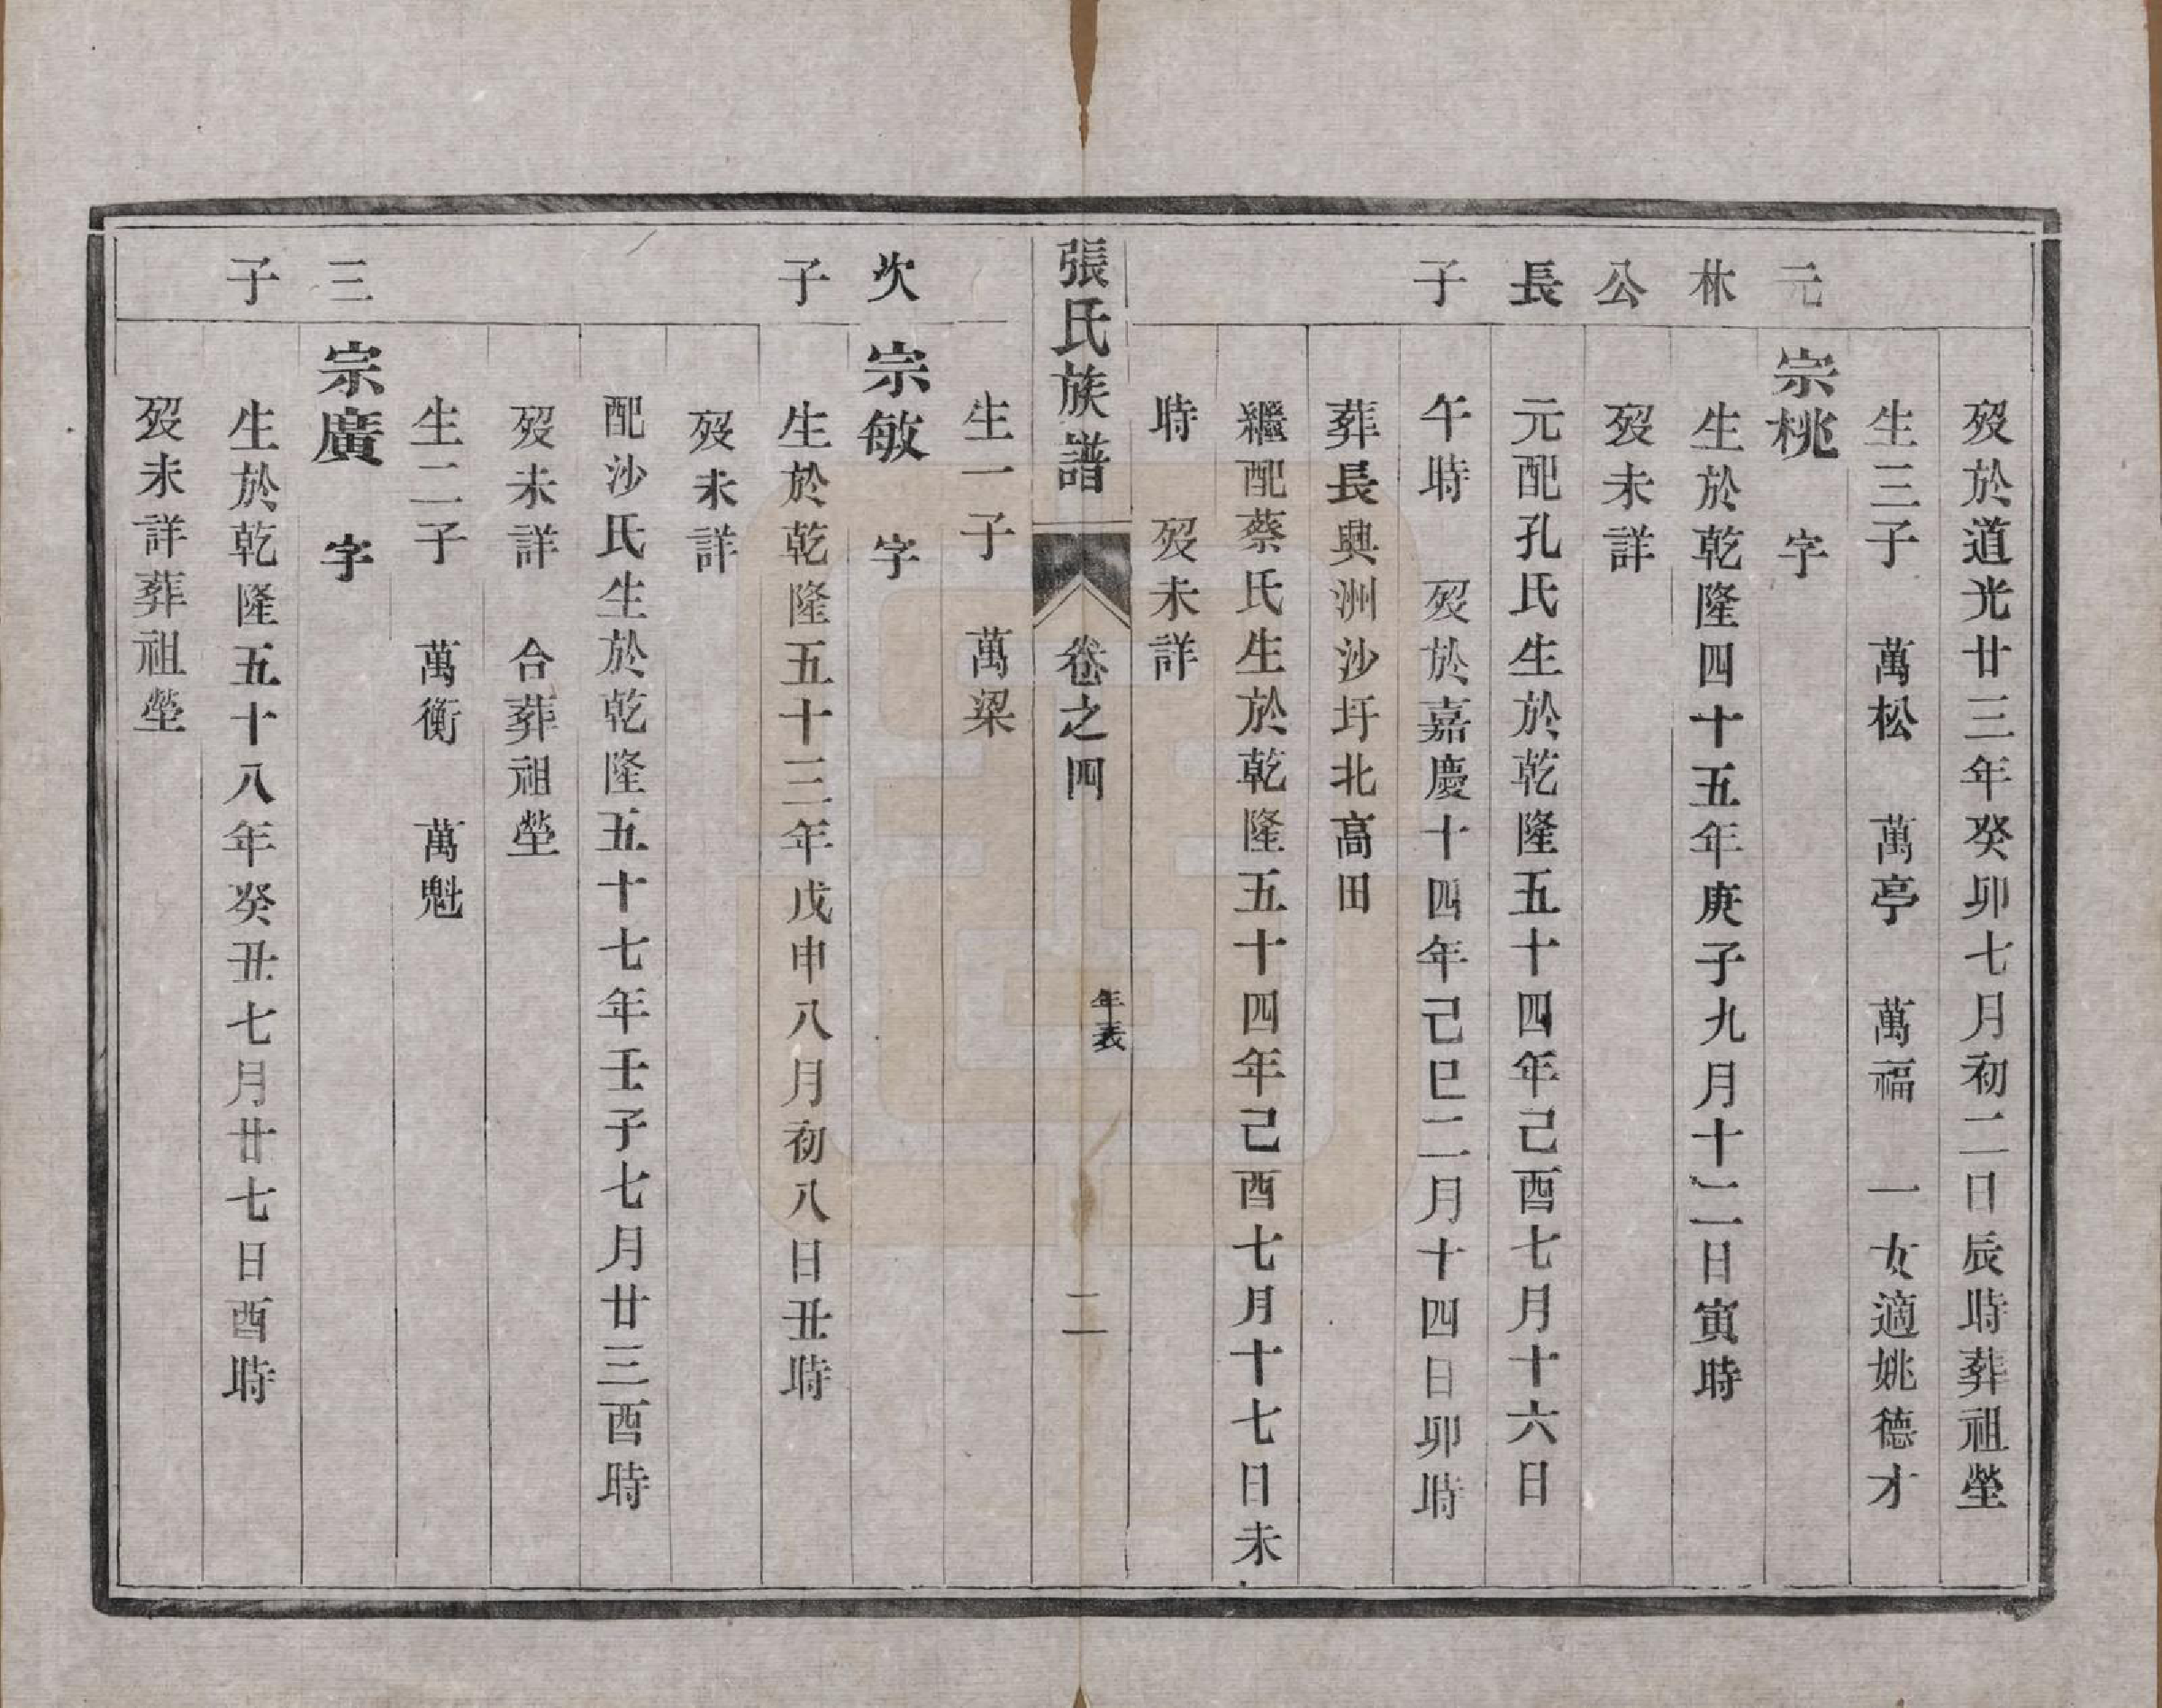 歿於道光廿三年癸卯七月初二日辰時葬祖塋
生三子　萬松　萬亭　萬福　一女適姚德才
元林公長子
宗桃　字
生於乾隆四十五年庚子九月十二日寅時
歿未詳
元配孔氏生於乾隆五十四年己酉七月十六日
午時　歿於嘉慶十四年己巳二月十四日卯時
葬長興洲沙圩北高田
繼配蔡氏生於乾隆五十四年己酉七月十七日未
時　歿未詳
張氏族譜　卷之四　年表　二
生一子　萬梁
次子
宗敏　字
生於乾隆五十三年戊申八月初八日丑時
歿未詳
配沙氏生於乾隆五十七年壬子七月廿三酉時
歿未詳　合葬祖塋
生二子　萬衡　萬魁
三子
宗廣　字
生於乾隆五十八年癸丑七月廿七日酉時
歿未詳葬祖塋